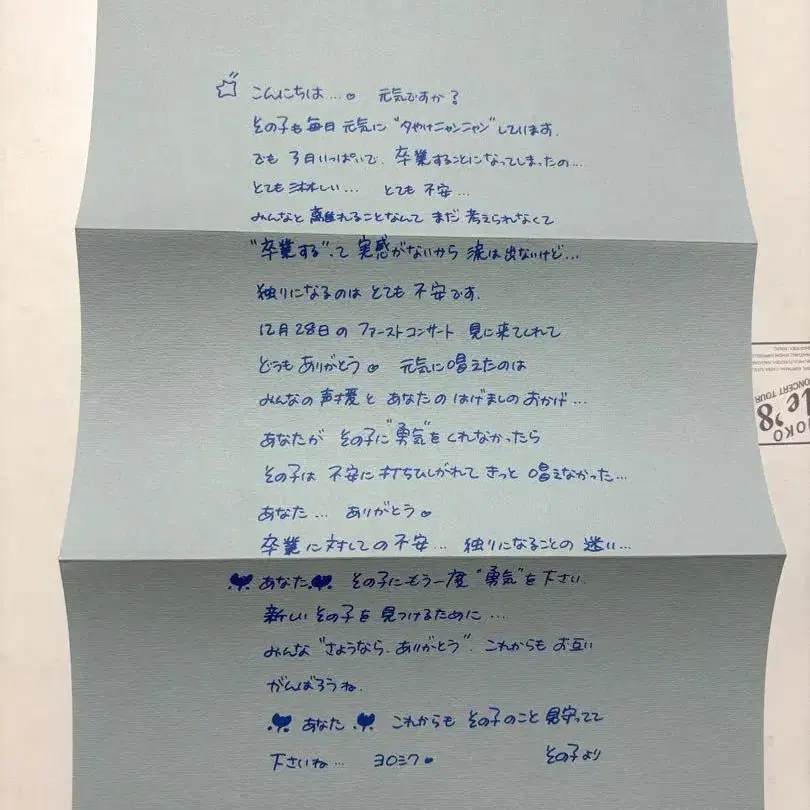 こんにちは…。 元気ですか?
その子も毎日元気に“夕やけニャンニャン”しています.
でも 3日いっぱいで. 卒業することになってしまったの…
とても淋しい… とても 不安…
みんなと 離れることなんて まだ 考えられなくて
“卒業する”って 実感がないから 涙は出ないけど…
独りになるのは とても 不安です.
12月28日の ファーストコンサート 見に来てくれて
どうも ありがとう♥ 元気に唱えたのは
みんなの 声援と あなたの はげましの おかげ…
あなたが その子に“勇気”をくれなかったら
その子は 不安に打ちひしがれて きっと 唱えなかった…
あなた… ありがとう♥
卒業に対しての不安… 独りになることの 迷い…
♥あなた♥ その子にもう一度“勇気”を下さい.
新しい その子を 見つけるために…
みんな“さようなら.ありがとう”. これからも お互い
がんばろうね.
♥ あなた ♥ これからも その子のこと 見守ってて
下さいね… ヨロシク♥ その子より
CONCERT TOUR